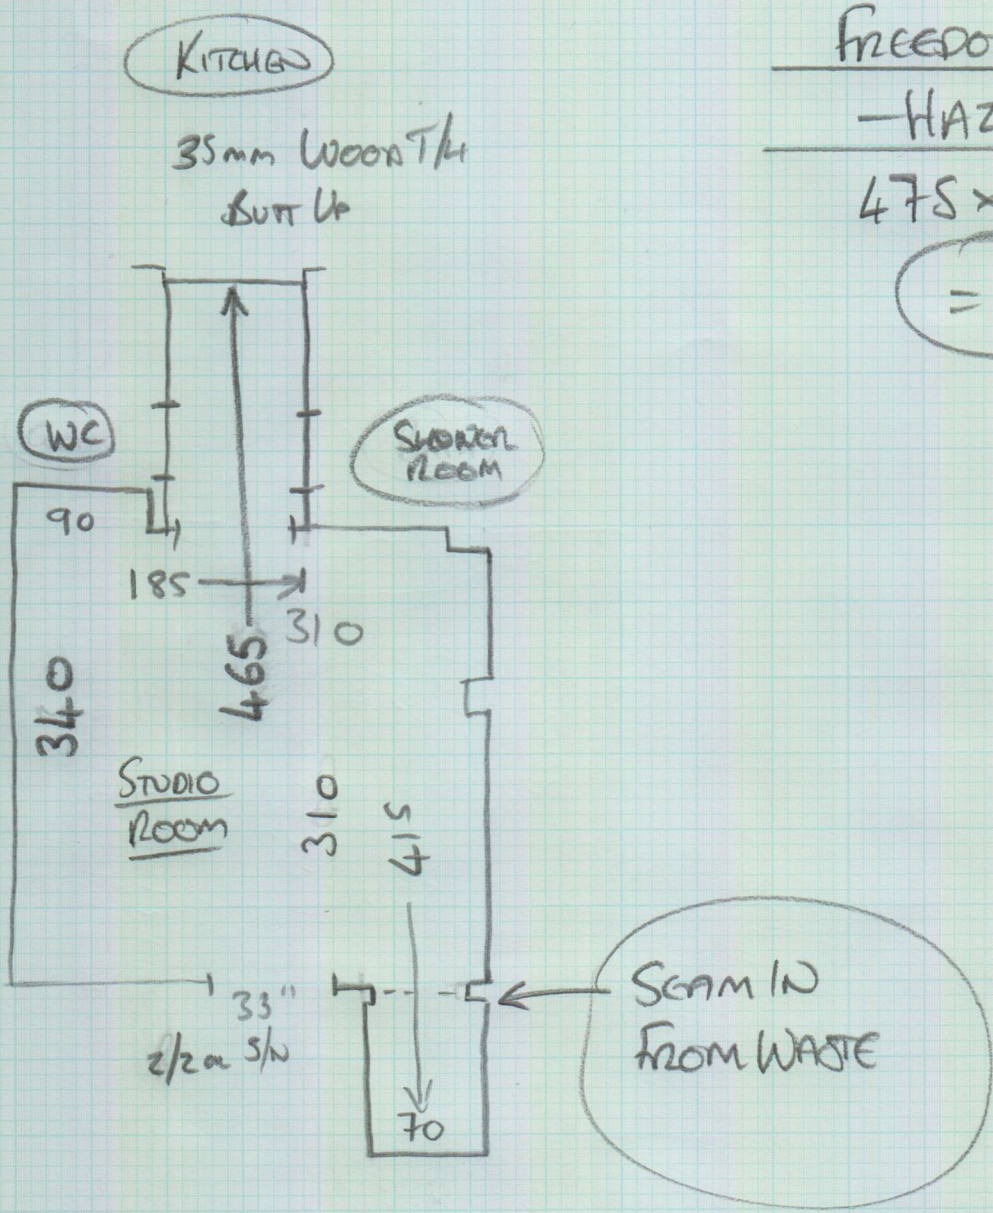 KITCHEN
35mm WOOD T/H
BUTT UP
FREEDO
-HAZ
475 x
=
WC
SHOWER
ROOM
90
185
310
465
340
STUDIO
ROOM
310
415
33"
2/2 or S/N
70
SEAM IN
FROM WASTE